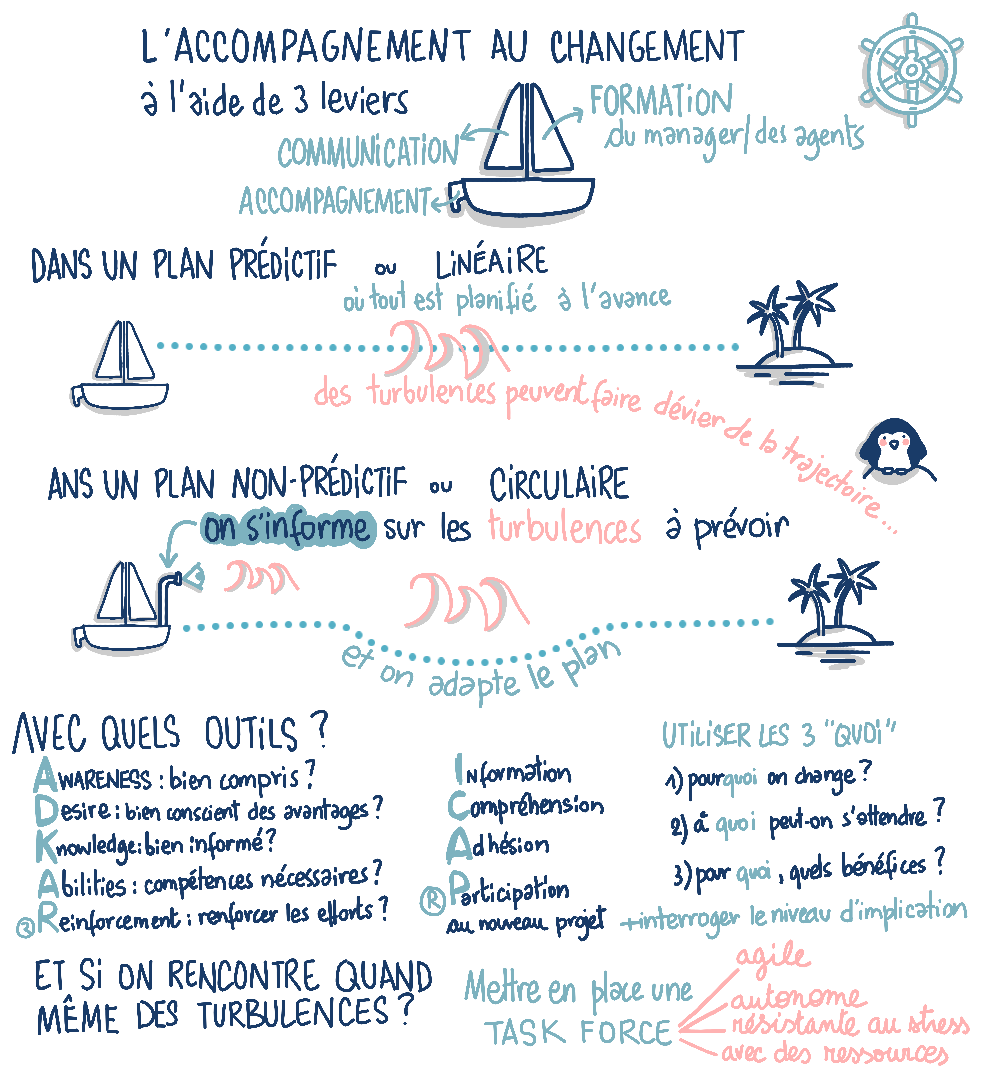 L'ACCOMPAGNEMENT AU CHANGEMENT
à l'aide de 3 leviers
FORMATION
du manager/des agents
COMMUNICATION
ACCOMPAGNEMENT
DANS UN PLAN PRÉDICTIF ou LINÉAIRE
où tout est planifié à l'avance
des turbulences peuvent faire dévier de la trajectoire...
ANS UN PLAN NON-PRÉDICTIF ou CIRCULAIRE
on s'informe sur les turbulences à prévoir
et on adapte le plan
AVEC QUELS OUTILS ?
AWARENESS : bien compris ?
Desire : bien conscient des avantages ?
Knowledge : bien informé ?
Abilities : compétences nécessaires ?
② Reinforcement : renforcer les efforts ?
Information
Compréhension
Adhésion
Ⓡ Participation
au nouveau projet
UTILISER LES 3 "QUOI"
1) pourquoi on change ?
2) à quoi peut-on s'attendre ?
3) pour quoi, quels bénéfices ?
+ interroger le niveau d'implication
ET SI ON RENCONTRE QUAND
MÊME DES TURBULENCES ?
Mettre en place une
TASK FORCE
agile
autonome
résistante au stress
avec des ressources